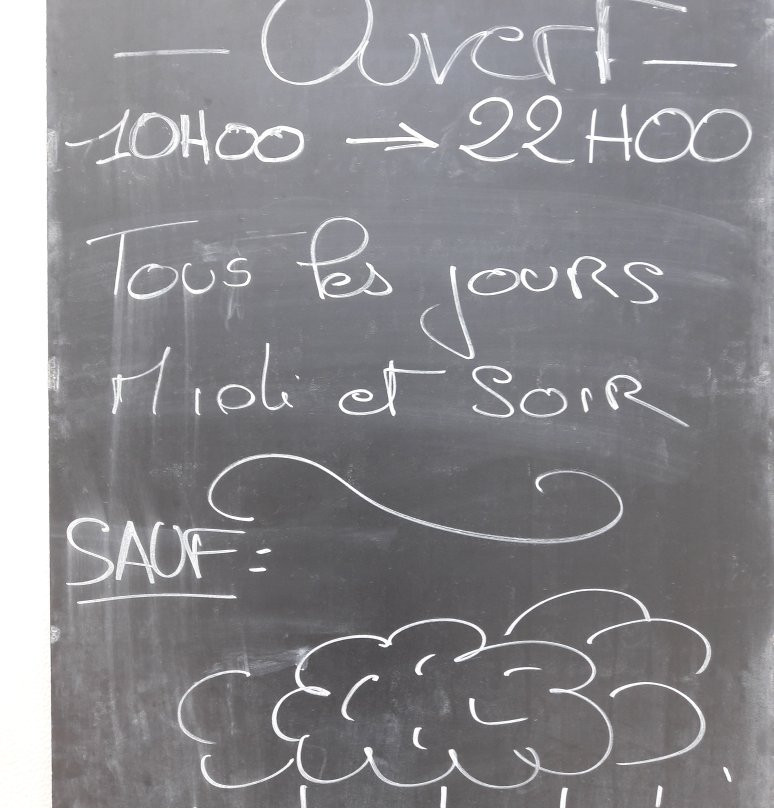 — Ouvert —
10H00 → 22H00
Tous les jours
Midi et SOIR
SAUF :